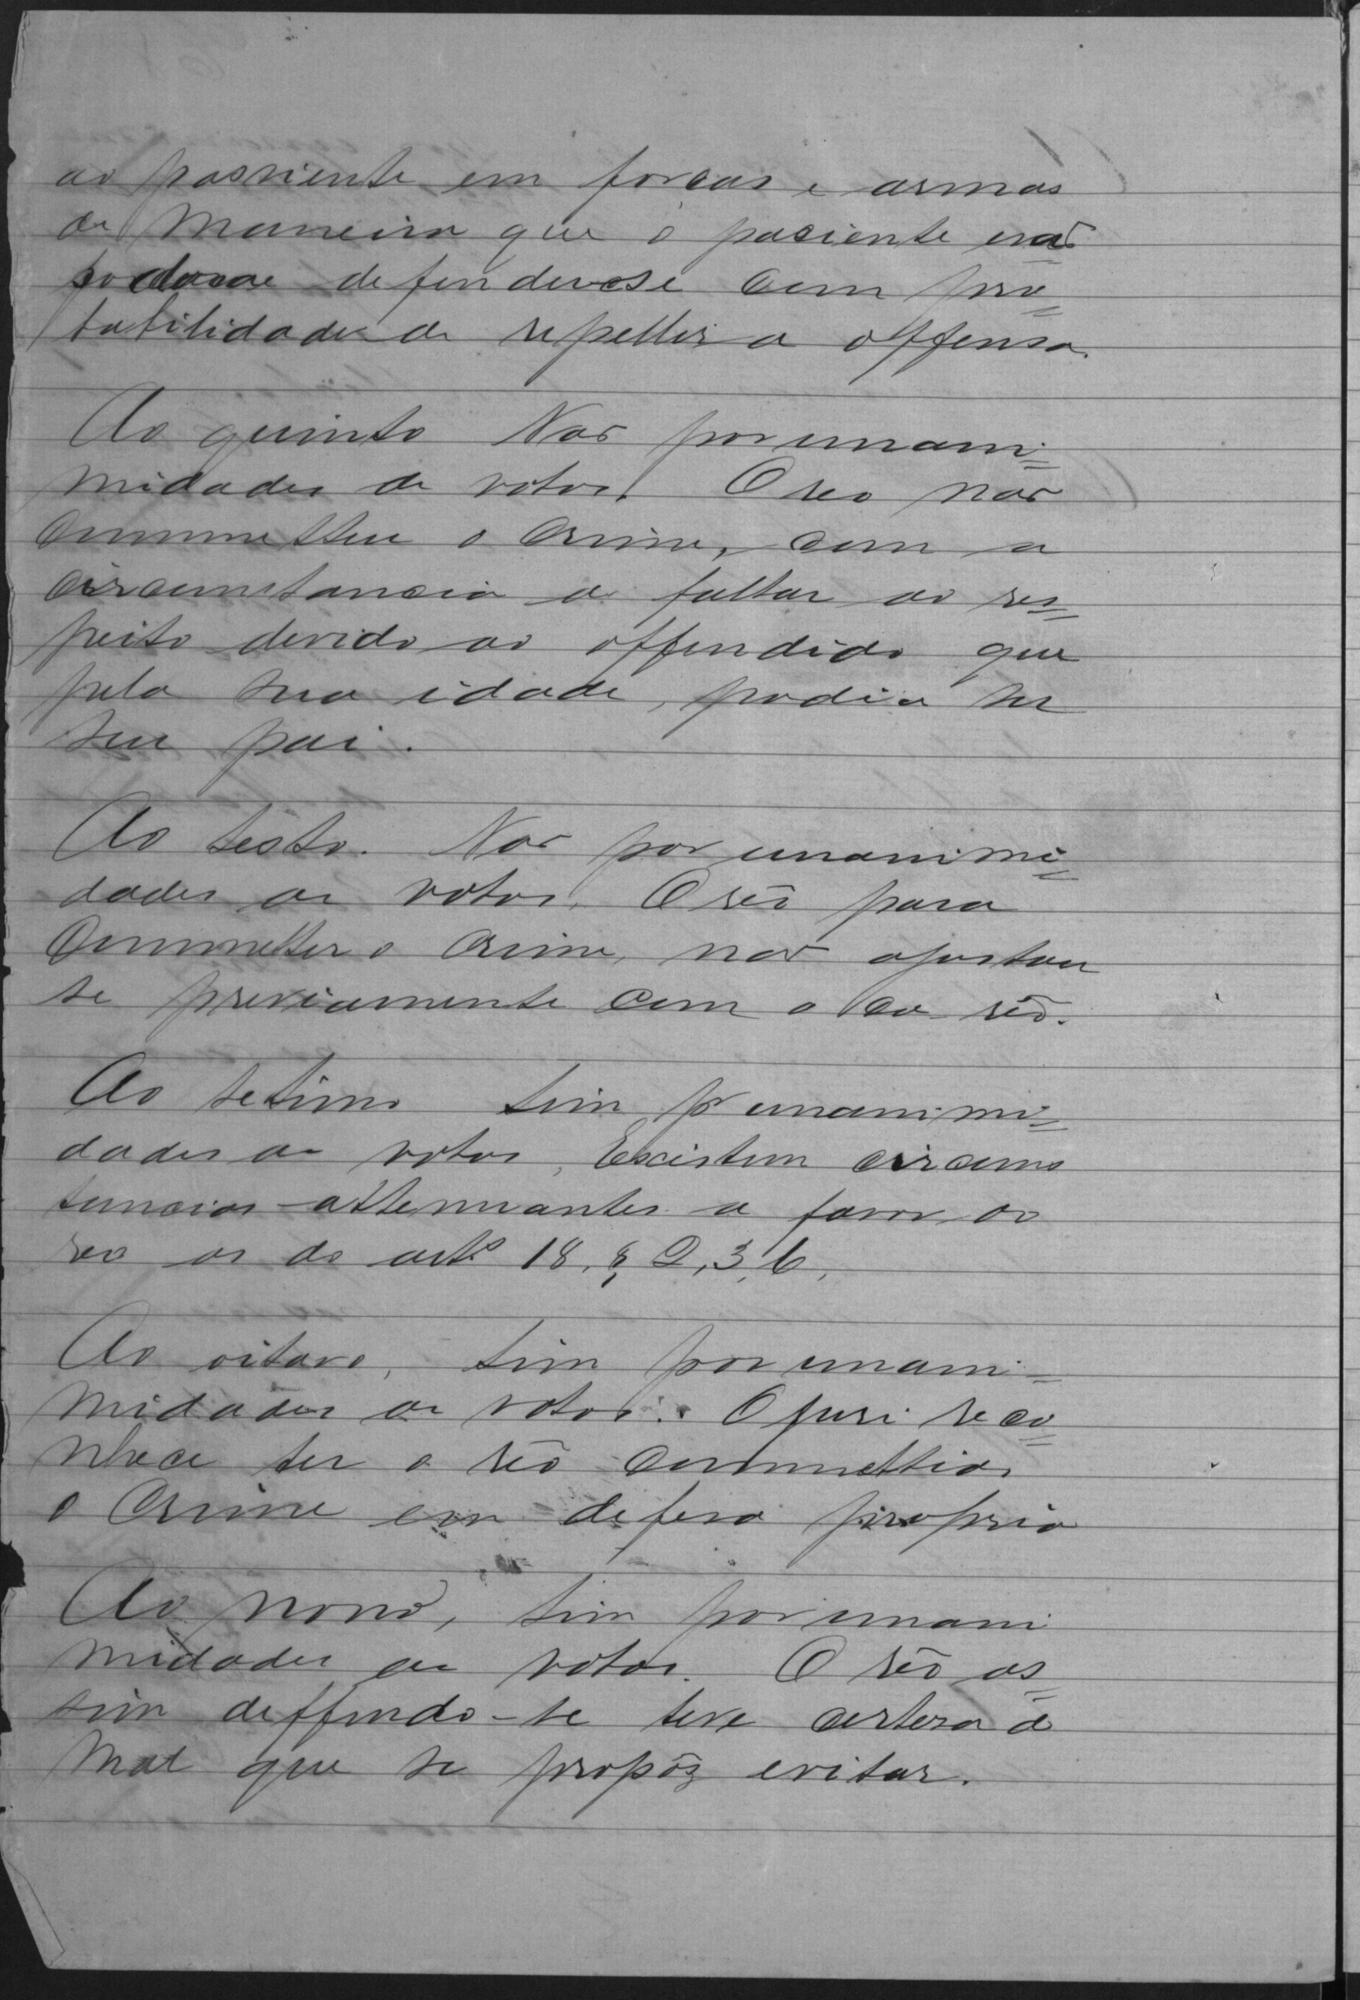 ao passiente em forcas e armas
de Maneira que o paciente não
podesse defender-se com pro=
babilidades de repellir a offensa.
Ao quinto Não por unani=
midades de votos. O reo não
commetteu o crime, com a
circumstancia de faltar ao res=
peito devido ao offendido que
pela sua idade, podia ser
seu pai.
Ao sesto. Não por unanimi=
dades de votos. O réo para
Commetter o crime, não ajustou
se previamente com o co-réo.
Ao setimo sim pr unanimi=
dades de votos, Existem circums
tancias attenuantes a favor do
reo as do artº 18, § 2, 3, 6,
Ao oitavo, sim por unani=
midades de votos. O juri reco=
nhece ter o réo commettido
o crime em defesa propria
Ao nono, sim por unani
midades de votos. O réo as=
sim deffendo-se teve certesa do
Mal que se propôz evitar.